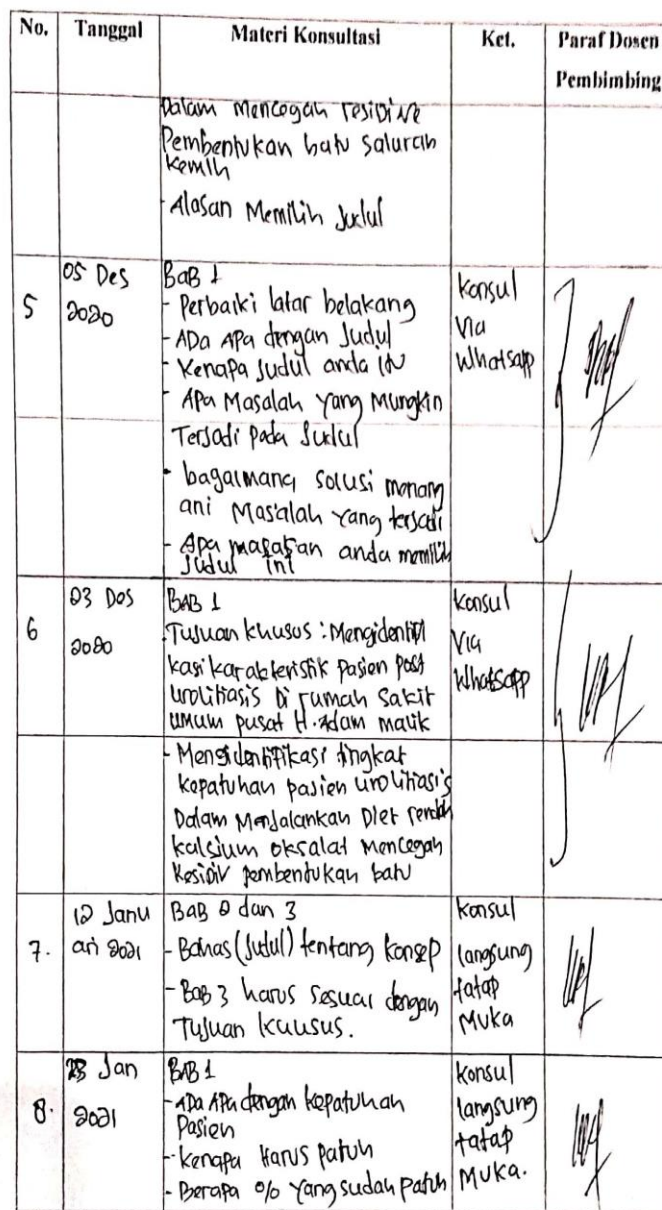 No. Tanggal Materi Konsultasi Ket. Paraf Dosen
Pembimbing
Dalam mencegah residive
Pembentukan batu saluran
Kemih
- Alasan Memilih Judul
5
05 Des
2020
BaB 1
- Perbaiki latar belakang
- ADa APa dengan Judul
- Kenapa Judul anda ini
- APa Masalah Yang Mungkin
Terjadi Pada Judul
- bagaimana solusi menang
ani Masalah Yang terjadi
- Apa anda memilih
Judul ini
Konsul
Via
Whatsapp
6
23 Des
2020
BAB 1
Tujuan khusus : Mengidentifi
kasi karakteristik Pasien Post
urolithiasis Di rumah Sakit
umum pusat H. Adam malik
- Mengidentifikasi tingkat
kepatuhan pasien urolithiasis
Dalam Menjalankan Diet rendah
kalsium oksalat Mencegah
Residiv pembentukan batu
Konsul
Via
Whatsapp
7.
12 Janu
ari 2021
BaB 2 dan 3
- Bahas (Judul) tentang konsep
- BaB 3 harus sesuai dengan
Tujuan Khusus.
Konsul
langsung
tatap
Muka
8.
23 Jan
2021
BAB 1
- ADa APa dengan kepatuhan
Pasien
- Kenapa Harus patuh
- Berapa % Yang sudah patuh
Konsul
langsung
tatap
Muka.